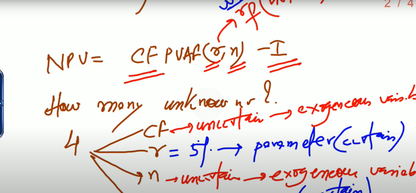 rf (
NPV = CF PVAF(r, n) - I
How many unknowns?
4
CF → uncertain → exogeneous variab
r = 5% → parameter (certain)
n → uncertain → exogeneous variab